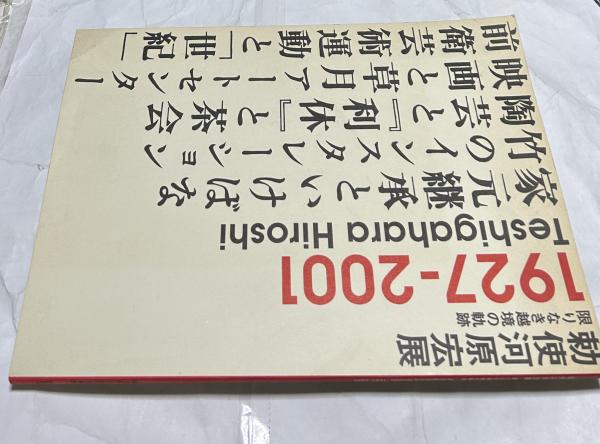 勅使河原宏展
限りなき越境の軌跡
1927-2001
Teshigahara Hiroshi
家元継承といけばな
竹のインスタレーション
陶芸と『利休』と茶会
映画と草月アートセンター
前衛芸術運動と「世紀」